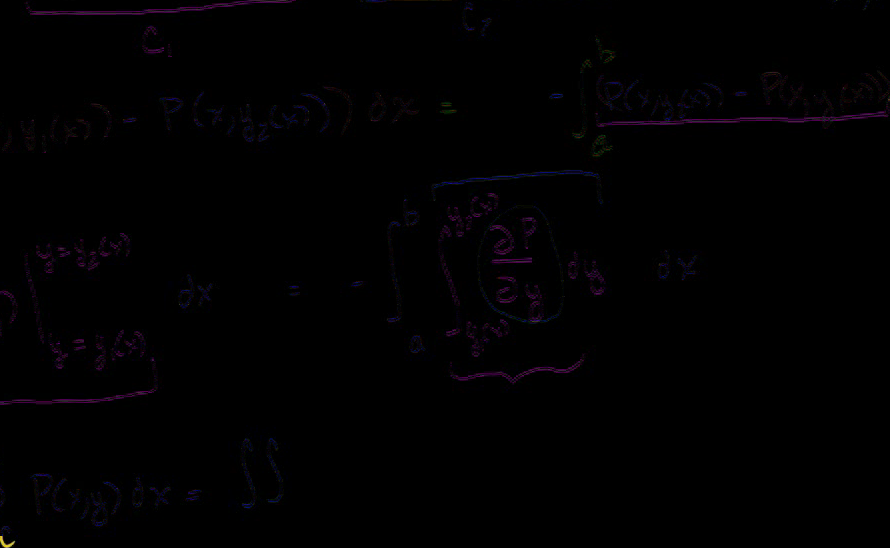 C₁ C₂
, y₁(x)) - P(x, y₂(x))) dx = - ∫ₐᵇ (P(x, y₂(x)) - P(x, y₁(x))
| y=y₂(x) y=y₁(x) dx = - ∫ₐᵇ ∫_{y₁(x)}^{y₂(x)} ∂P/∂y dy dx
P(x,y) dx = ∫∫
c